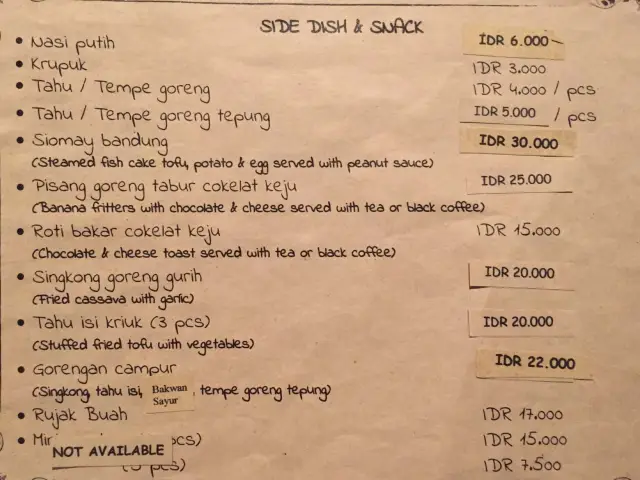 SIDE DISH & SNACK
• Nasi putih IDR 6.000
• Krupuk IDR 3.000
• Tahu / Tempe goreng IDR 4.000 / pcs
• Tahu / Tempe goreng tepung IDR 5.000 / pcs
• Siomay bandung IDR 30.000
(Steamed fish cake tofu, potato & egg served with peanut sauce)
• Pisang goreng tabur cokelat keju IDR 25.000
(Banana fritters with chocolate & cheese served with tea or black coffee)
• Roti bakar cokelat keju IDR 15.000
(Chocolate & cheese toast served with tea or black coffee)
• Singkong goreng gurih IDR 20.000
(Fried cassava with garlic)
• Tahu isi kriuk (3 pcs) IDR 20.000
(Stuffed fried tofu with vegetables)
• Gorengan campur IDR 22.000
(Singkong, tahu isi, Bakwan Sayur, tempe goreng tepung)
• Rujak Buah IDR 17.000
• pcs) IDR 15.000
NOT AVAILABLE
pcs) IDR 7.500